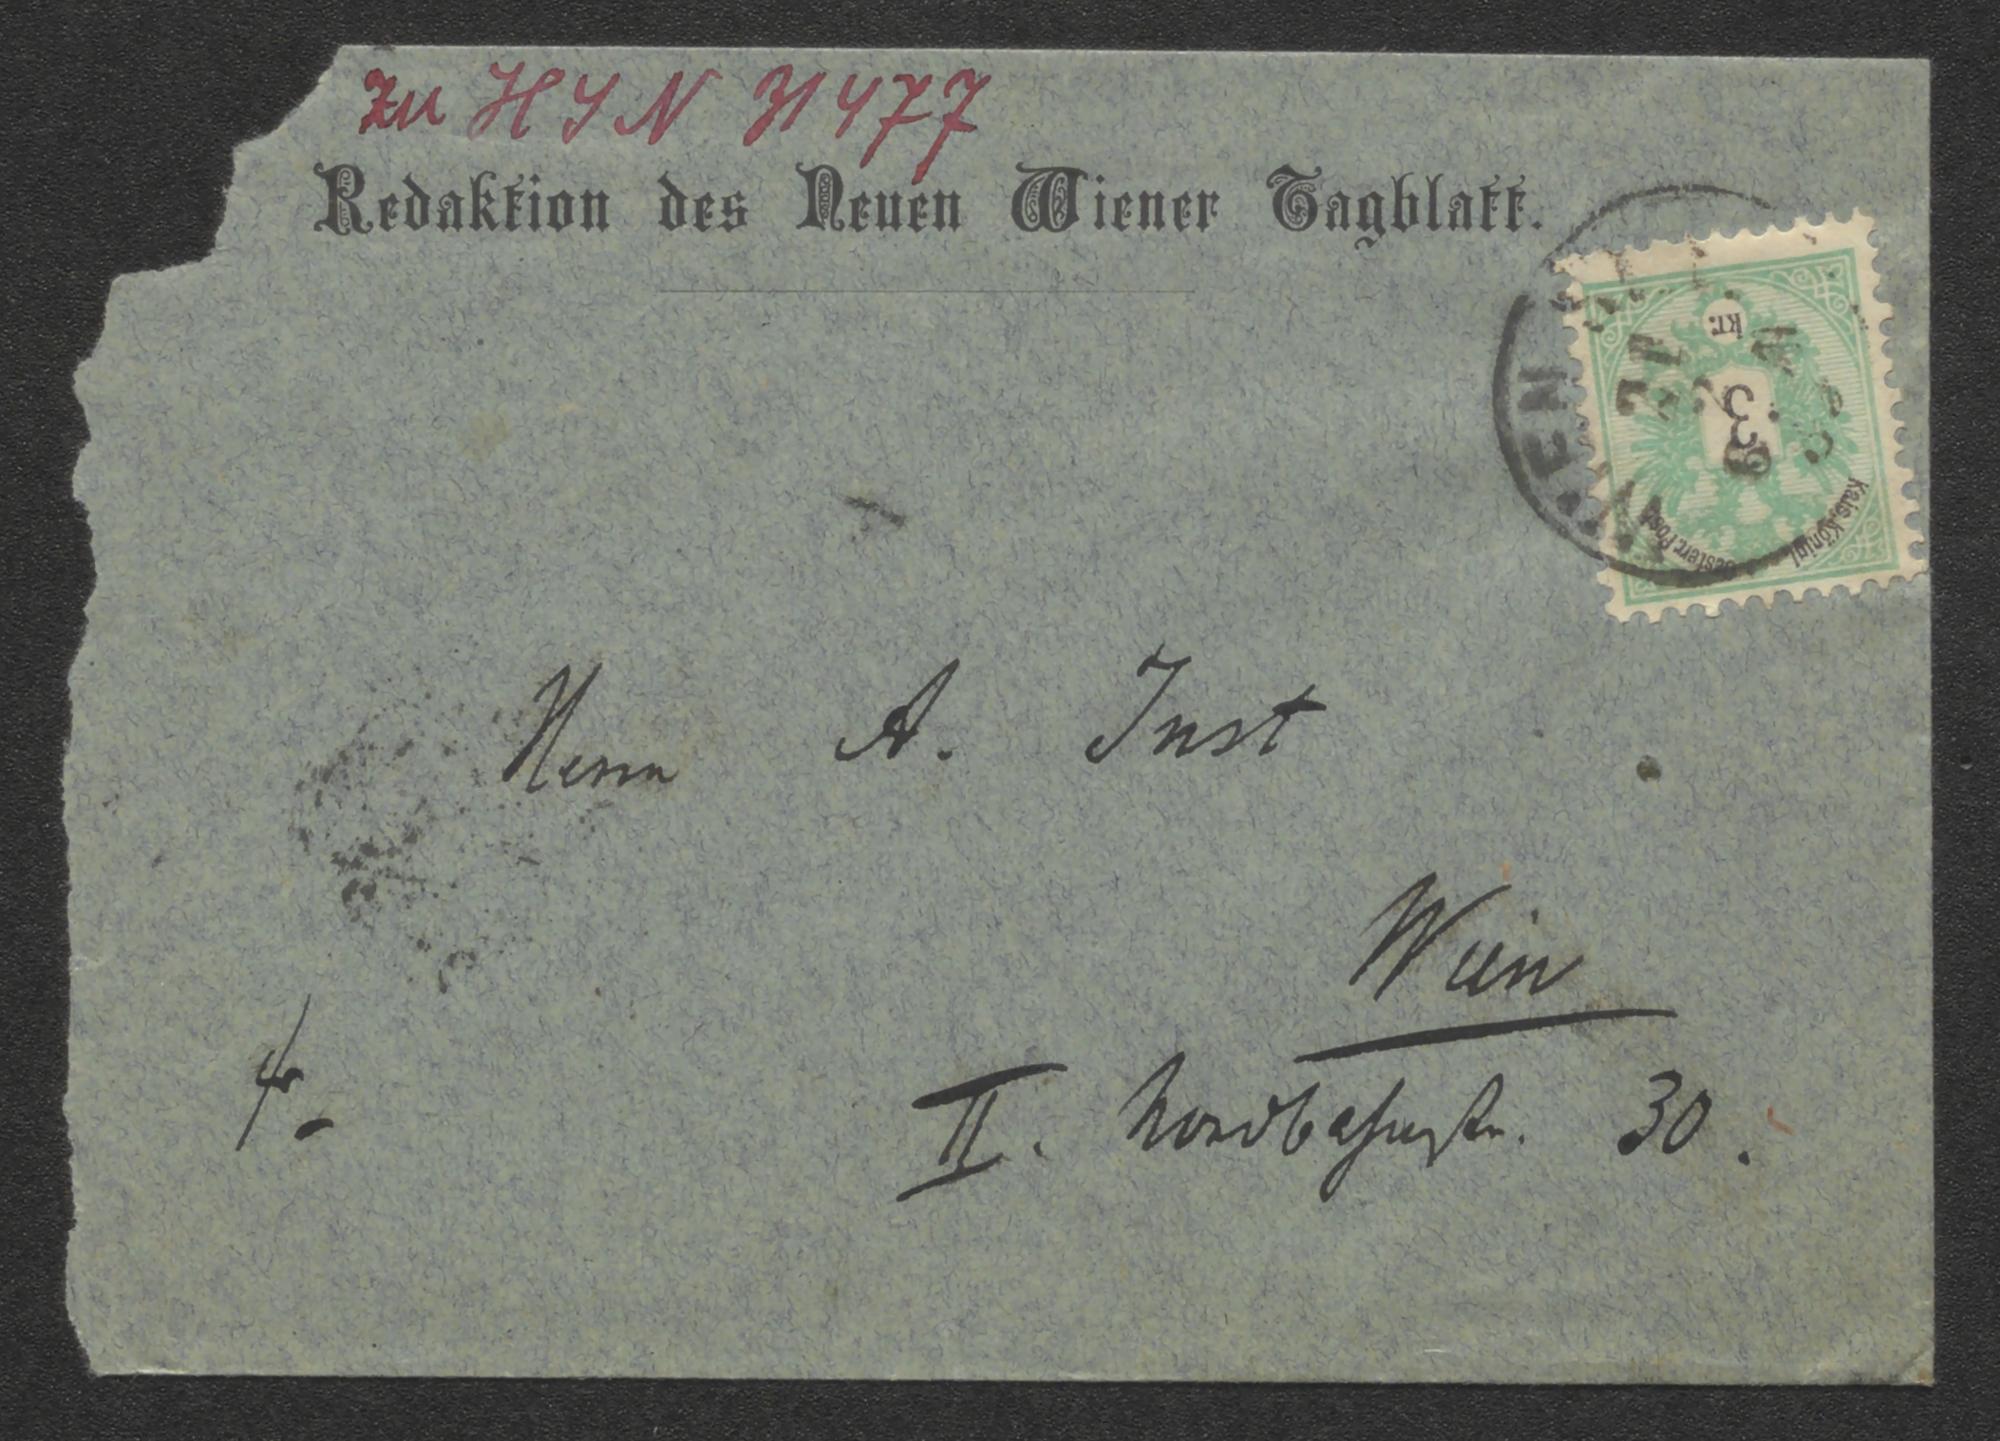 zu HIN 31477
Redaktion des Neuen Wiener Tagblatt.
WIEN
kr.
3
Kais. Königl. Oesterr. Post
Herrn A. Just
Wien
II. Nordbahnstr. 30.